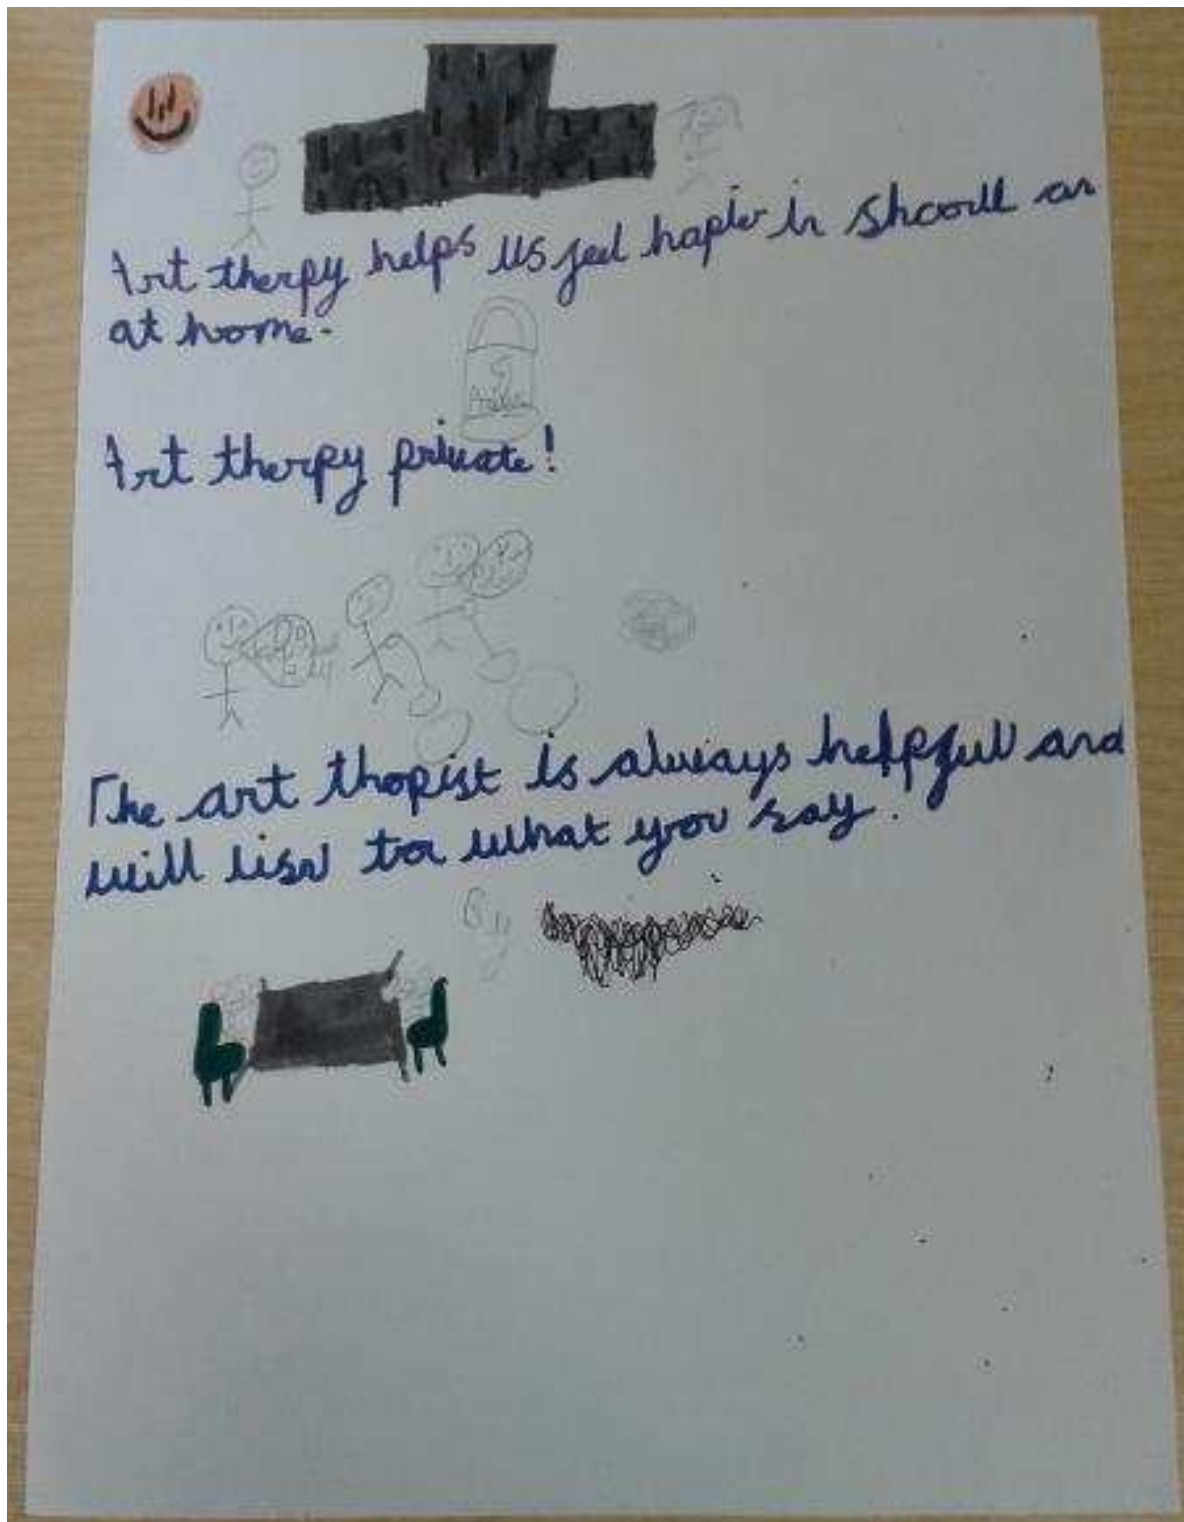 Art therpy helps us feel hapier in shcoull an
at home.
Art therpy private!
The art thopist is always helpfull and
will lisn to what you say.
By